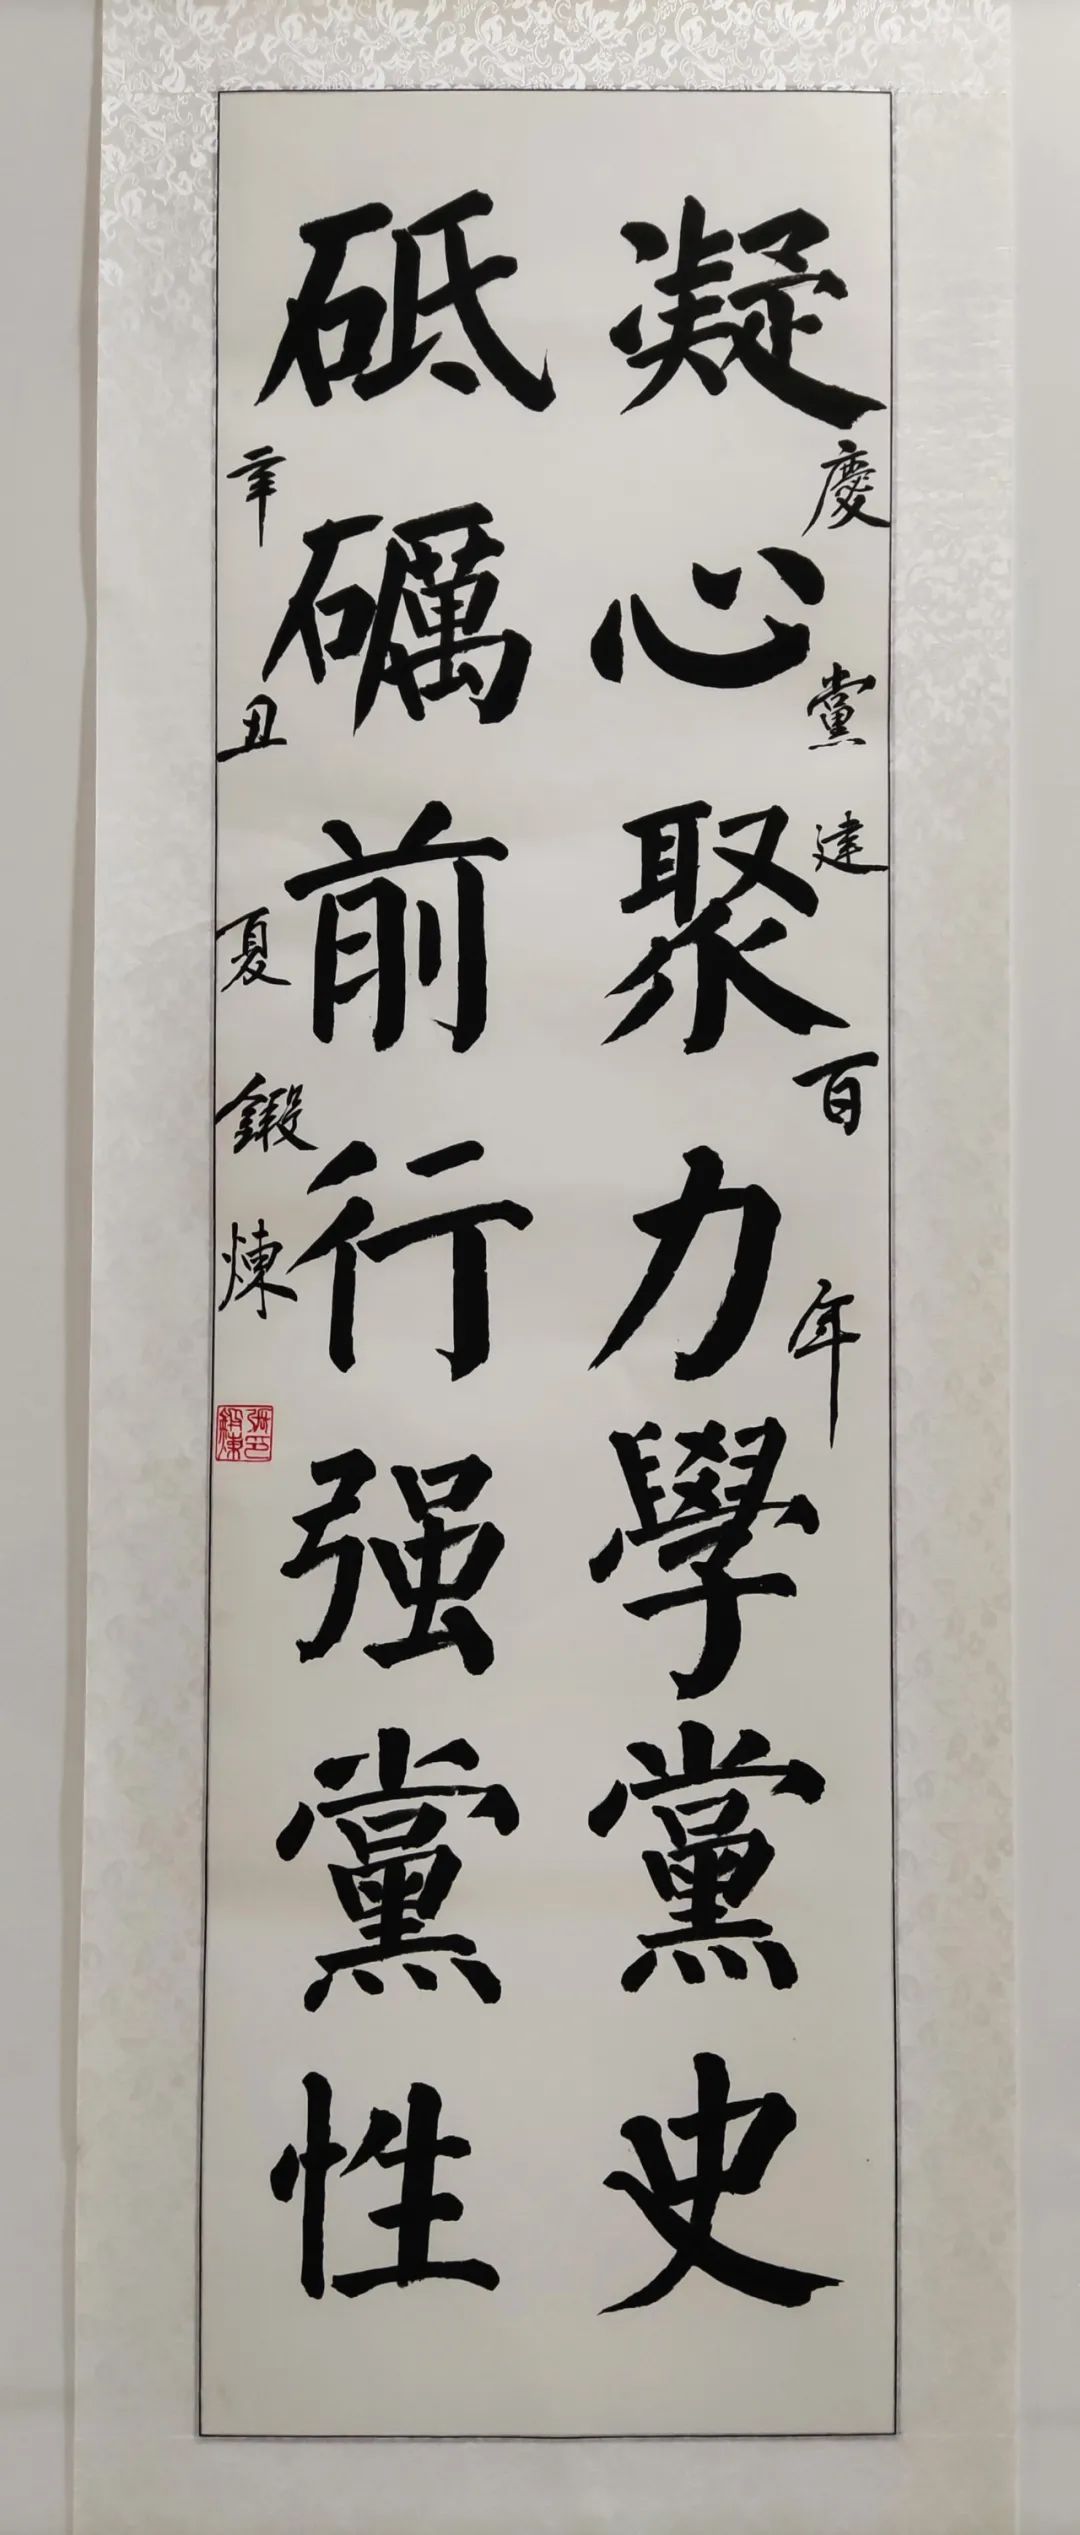 慶黨建百年
凝心聚力學黨史
砥礪前行强黨性
辛丑夏鍛煉
張印
鍛煉